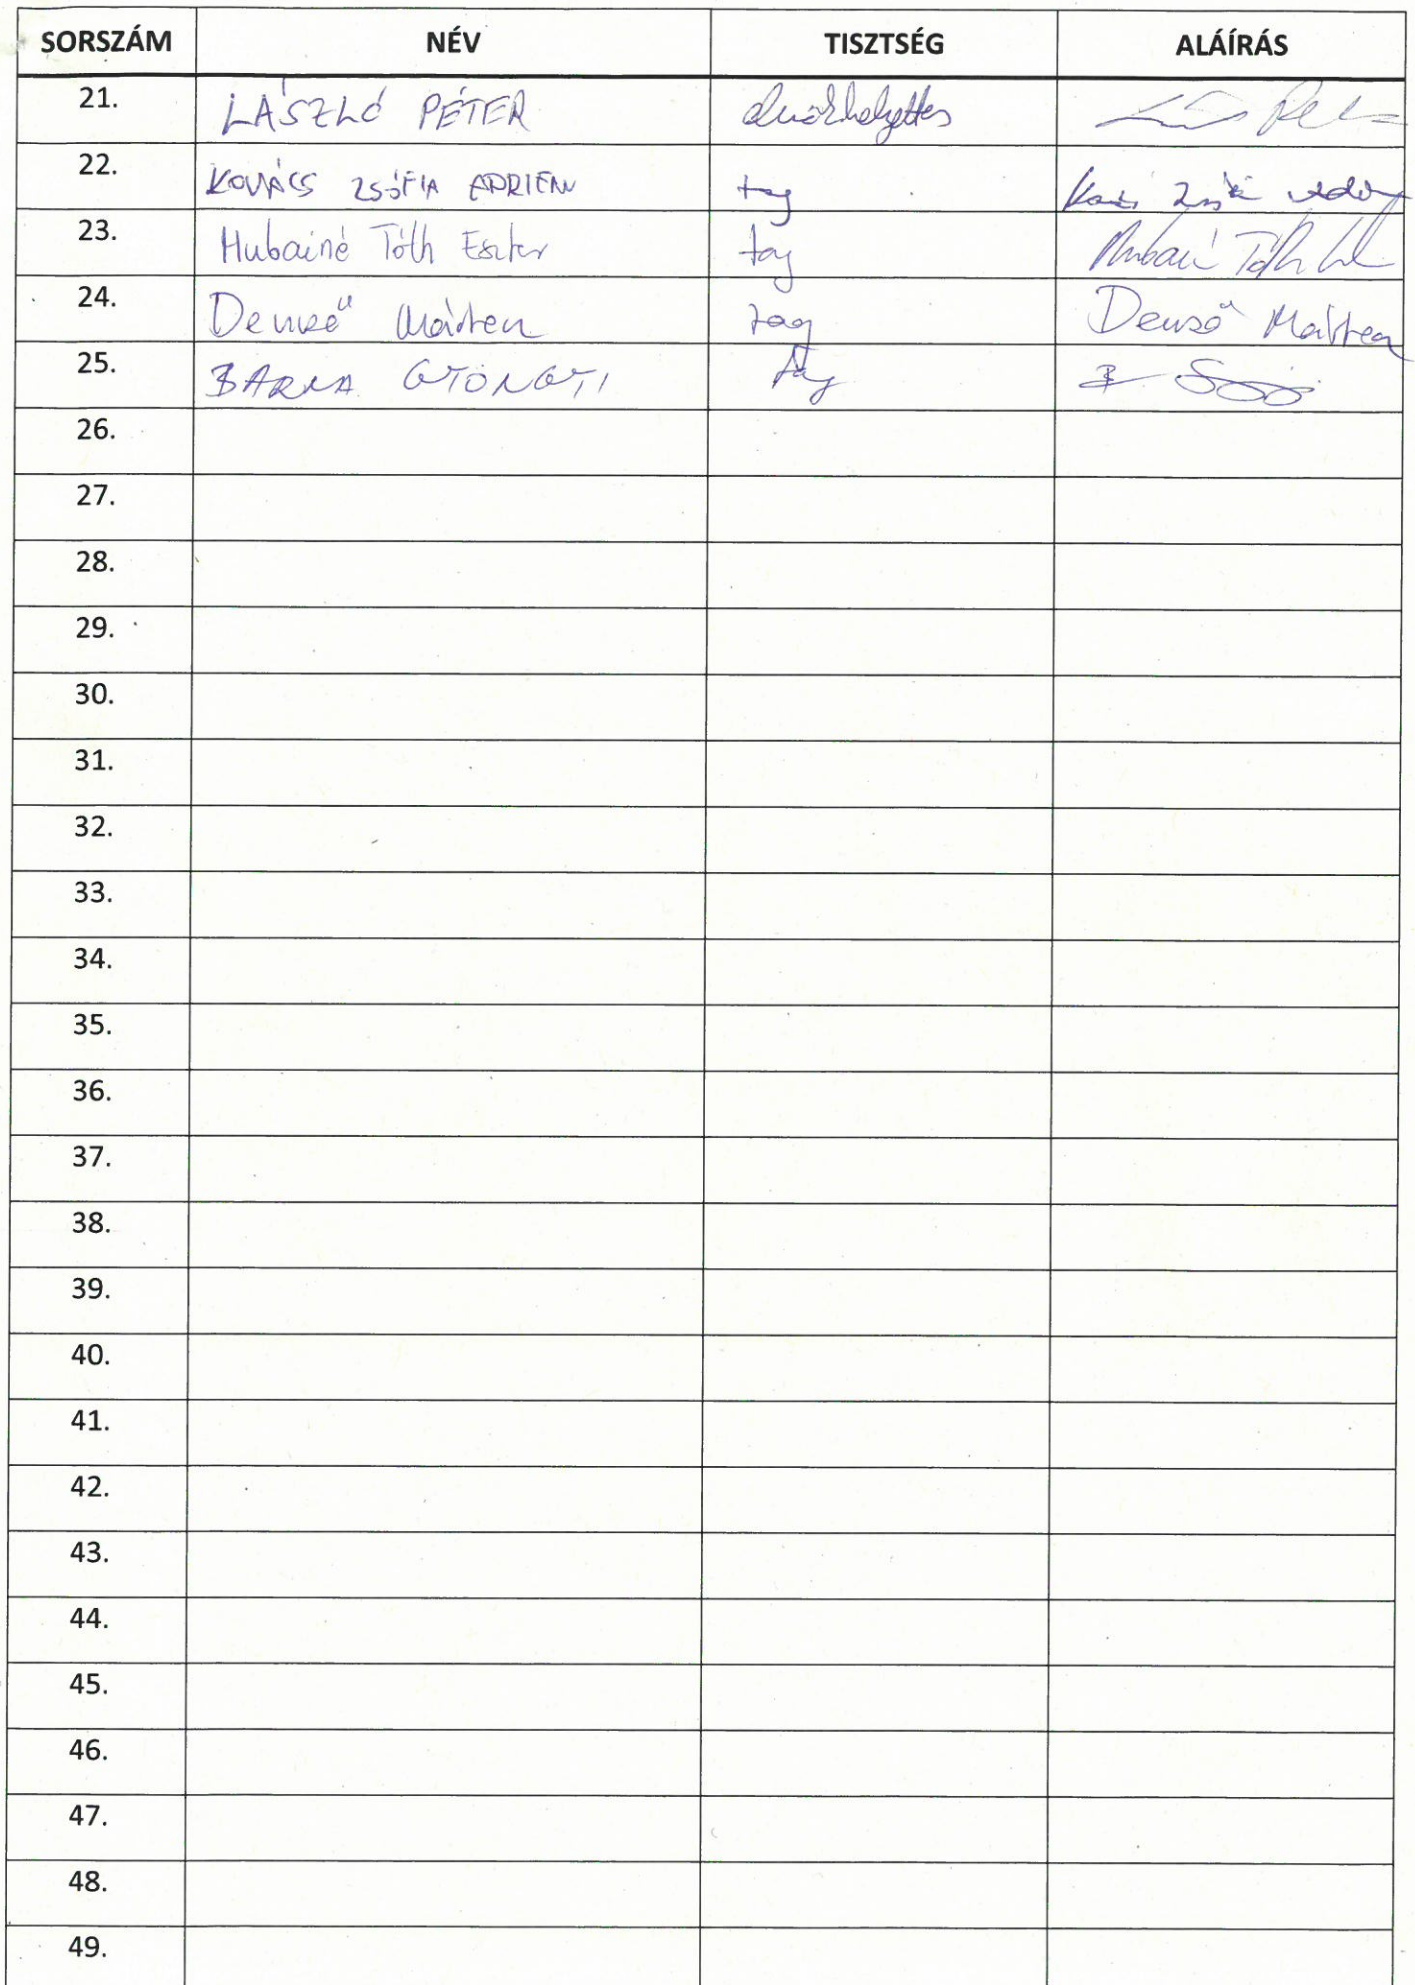 SORSZÁM NÉV TISZTSÉG ALÁÍRÁS
21. LÁSZLÓ PÉTER elnökhelyettes
22. KOVÁCS ZSÓFIA ADRIENN tag
23. Hubainé Tóth Eszter tag Hubainé Tóth
24. Márten tag Márten
25. BARNA GYÖNGYI tag
26.
27.
28.
29.
30.
31.
32.
33.
34.
35.
36.
37.
38.
39.
40.
41.
42.
43.
44.
45.
46.
47.
48.
49.